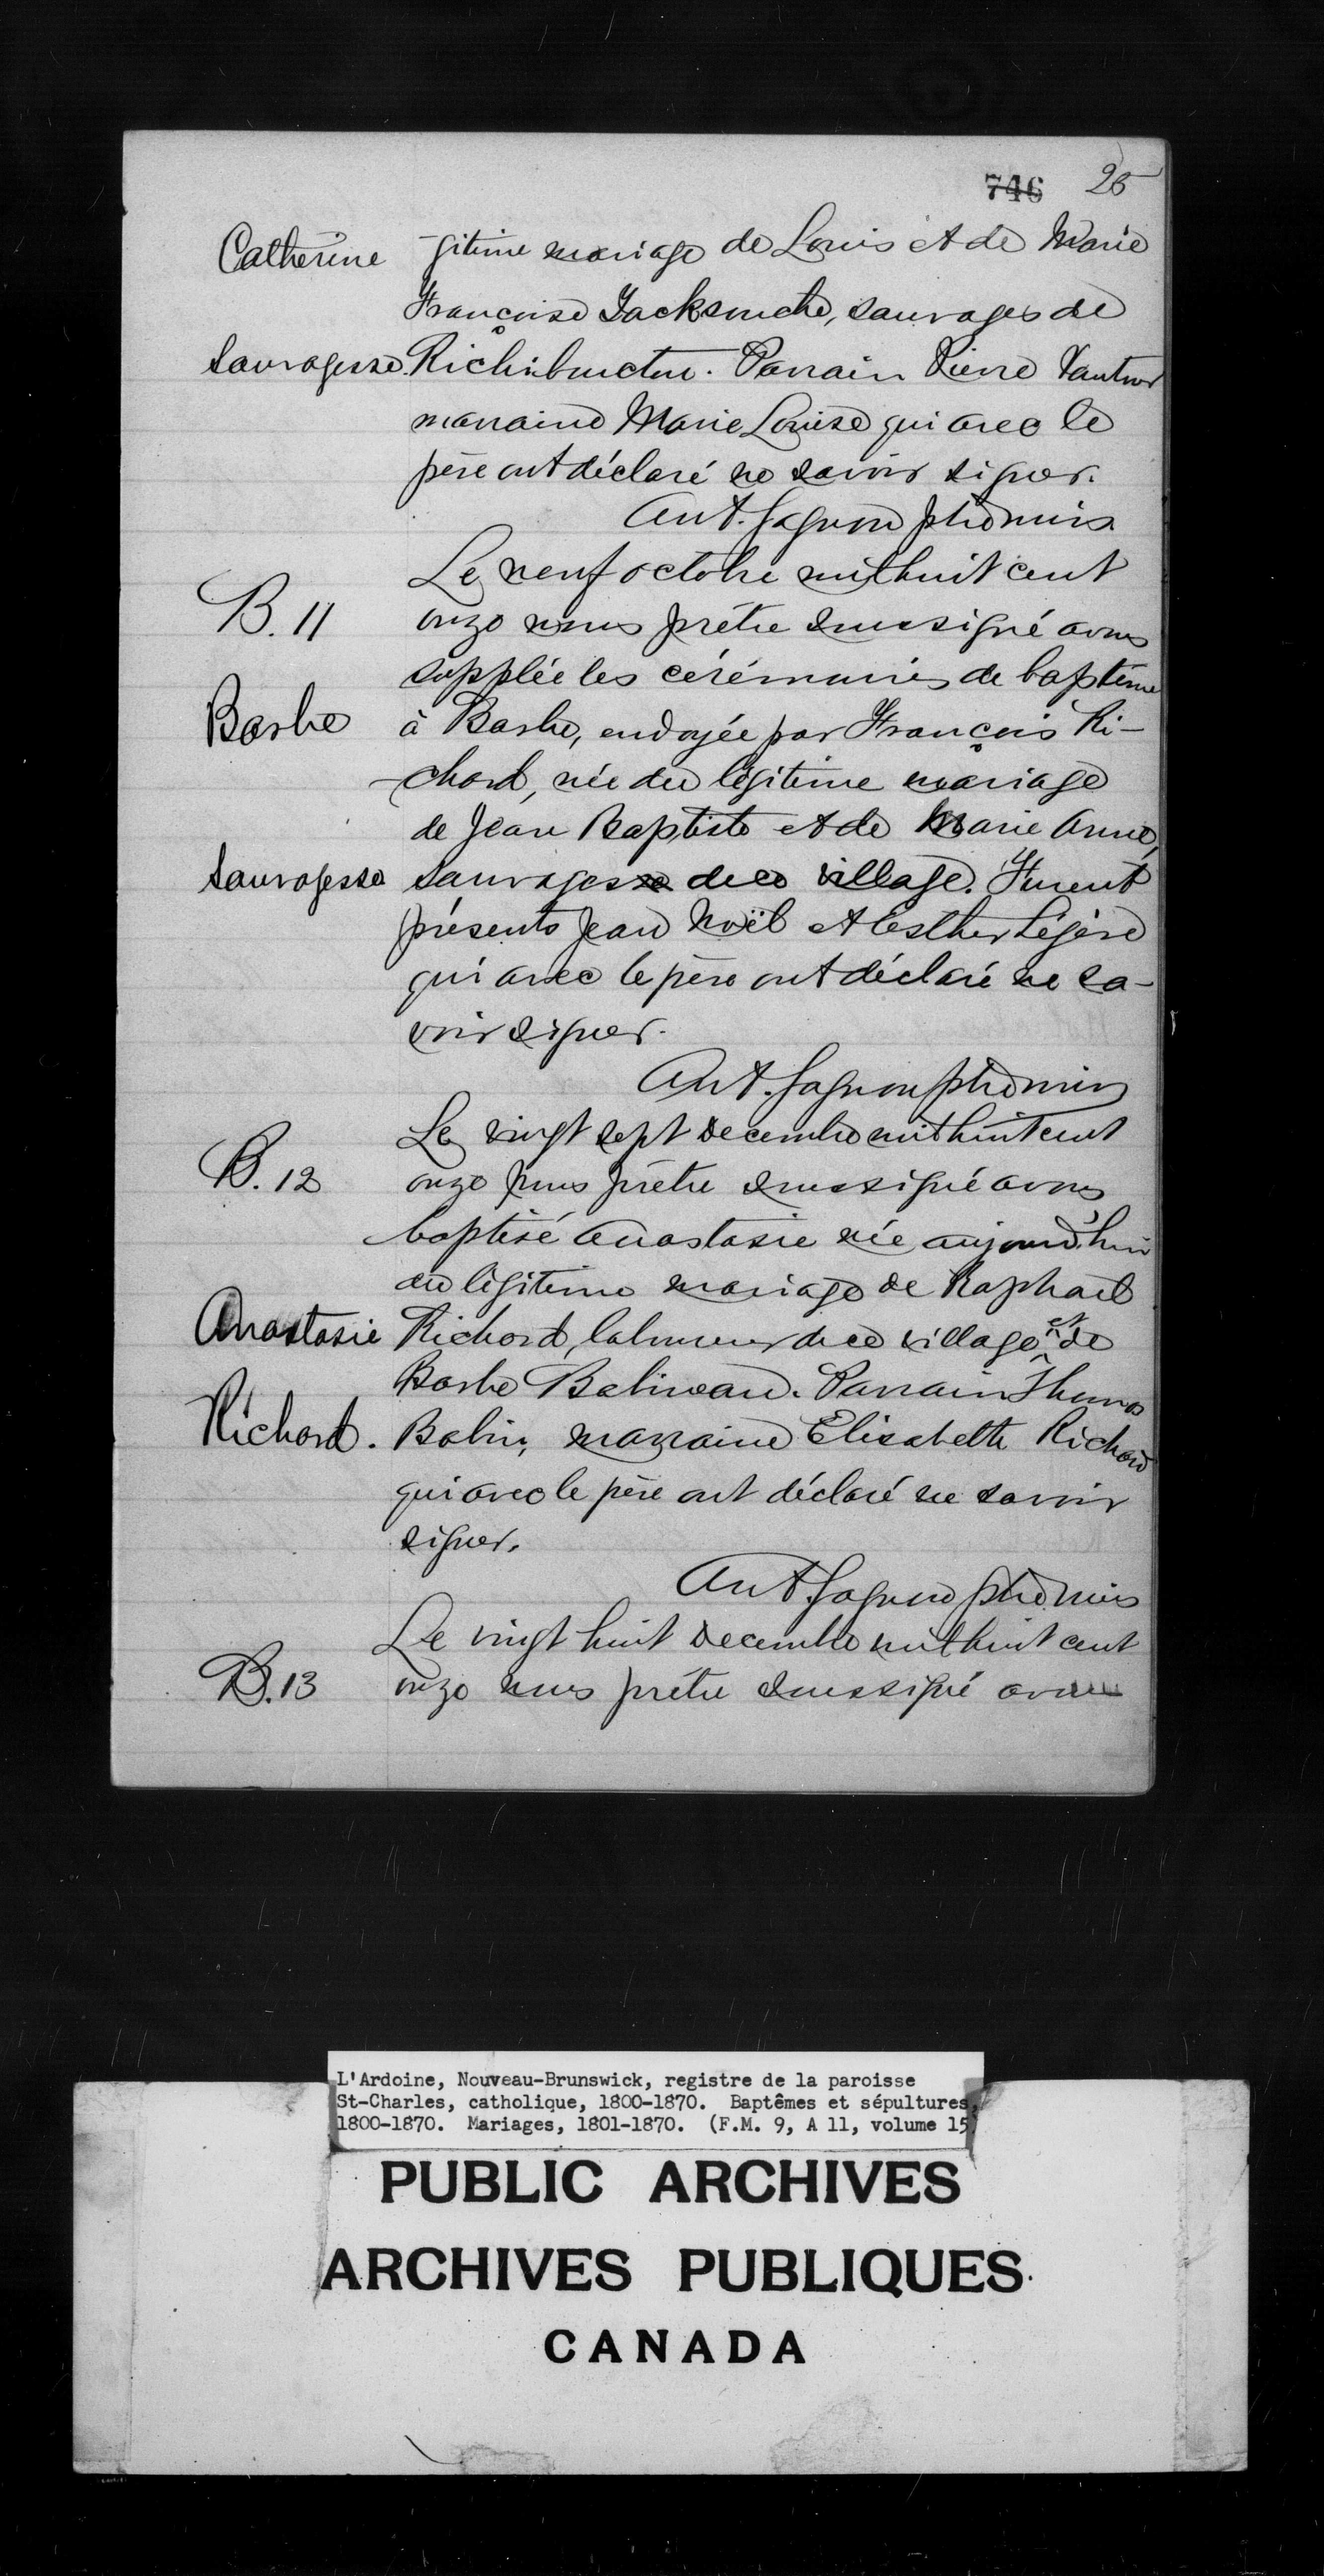 746 25
Catherine -gitime mariage de Louis et de Marie
Françoise Jacksouche, sauvages de
Sauvagesse. Richibouctou. Parrain Pierre
marraine Marie Louise qui avec le
père ont déclaré ne savoir signer.
Ant. Gagnon ptre miss
Le neuf octobre mil huit cent
B. 11 onze nous prêtre soussigné avons
supplée les cérémonies de baptême
Barbe à Barbe, endoyée par François Ri-
-chard, née du légitime mariage
de Jean Baptiste et de Marie Anne,
Sauvagesse sauvages de ce village. Furent
présents Jean Noël et Esther Légère
qui avec le père ont déclaré ne sa-
voir signer.
Ant. Gagnon ptre miss
Le vingt sept decembre mil huit cent
B. 12 onze nous prêtre soussigné avons
baptisé Anastasie née aujourd'hui
du légitime mariage de Raphael
Anastasie Richard, laboureur de ce village et de
Barbe Babineau. Parrain Thomas
Richard. Babin, marraine Elisabette Richard
qui avec le père ont déclaré ne savoir
signer.
Ant. Gagnon ptre miss
Le vingt huit decembre mil huit cent
B. 13 onze nous prêtre soussigné avons
L'Ardoine, Nouveau-Brunswick, registre de la paroisse
St-Charles, catholique, 1800-1870. Baptêmes et sépultures,
1800-1870. Mariages, 1801-1870. (F.M. 9, A 11, volume 15)
PUBLIC ARCHIVES
ARCHIVES PUBLIQUES
CANADA